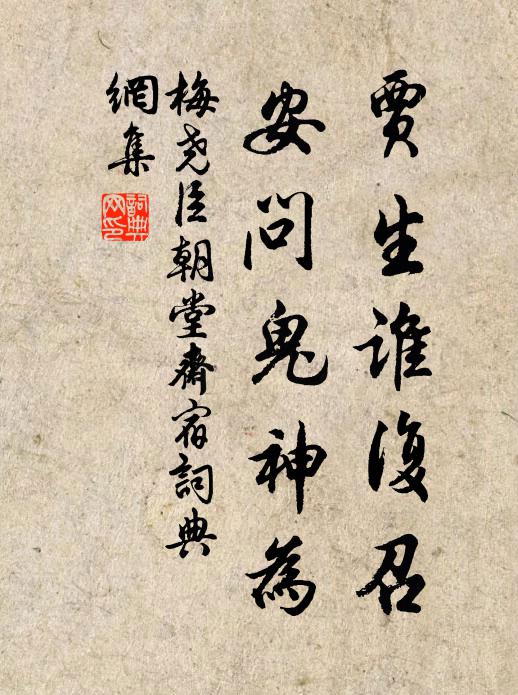 賈生誰復召
安問鬼神為
梅堯臣朝堂齋宿詞典
網集
詞典
网印